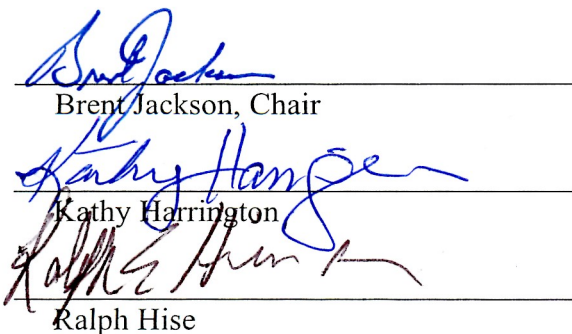 Brent Jackson
Brent Jackson, Chair
Kathy Harrington
Ralph E Hise
Ralph Hise